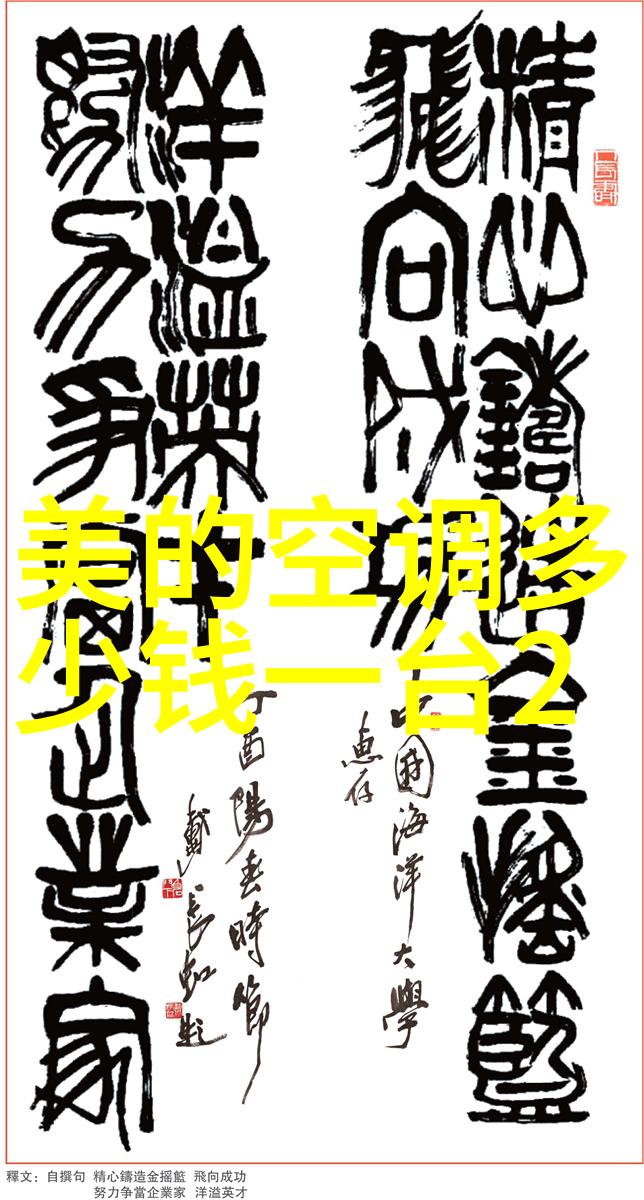 精心鑄造金摇籃
飛向成功
洋溢英才
努力争當企業家
中國海洋大學
惠存
丁酉陽春時節
戴長虹題
美的空调多
少钱一台2
釋文：自撰句 精心鑄造金摇籃 飛向成功
努力争當企業家 洋溢英才